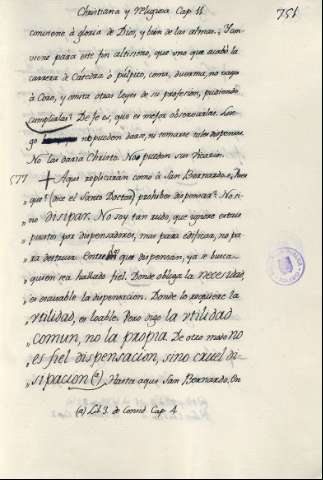 Christiana y Religiosa Cap. 11.
751
conviene à gloria de Dios, y bien de las almas. ¿Con-
viene para este fin altisimo, que uno que acabò la
carrera de Catedra ò pulpito, coma, duerma, no vaya
à Coro, y omita otras leyes de su profesion, pudiendo
cumplirlas? De fe es, que es mejor observarlas. Lue-
go no pueden darse, ni tomarse tales dispensas.
No las daria Christo. No pueden sus Vicarios.
577 + Aqui replicaràn como à San Bernardo. ¿Pues
que? (dice el Santo Doctor) prohibes dispensar? No. si-
no disipar. No soy tan rudo, que ignore estais
puestos por dispensadores, mas para edificar, no pa-
ra destruir. Entre los que dispensan, ya se busca
quien sea hallado fiel. Donde obliga la necesidad,
es escusable la dispensacion. Donde lo requiere la
utilidad, es loable. Pero digo la utilidad
comun, no la propia. De otro modo no
es fiel dispensacion, sino cruel di-
sipacion (a). Hasta aqui San Bernardo. En
(a) Lib. 3. de Consid. Cap. 4.